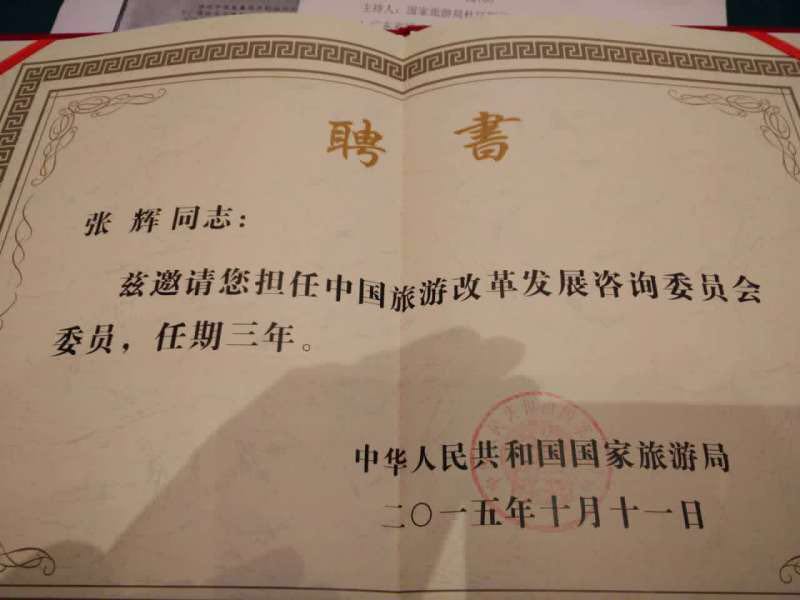 主持人：国家旅游局杜江
聘書
张辉同志：
兹邀请您担任中国旅游改革发展咨询委员会
委员，任期三年。
中华人民共和国国家旅游局
二〇一五年十月十一日